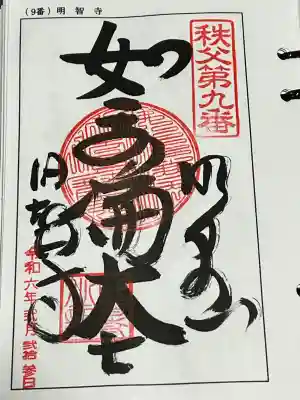 (9番) 明智寺
秩父第九番
明星山
如意輪大士
明智寺
令和六年弐月弐拾参日